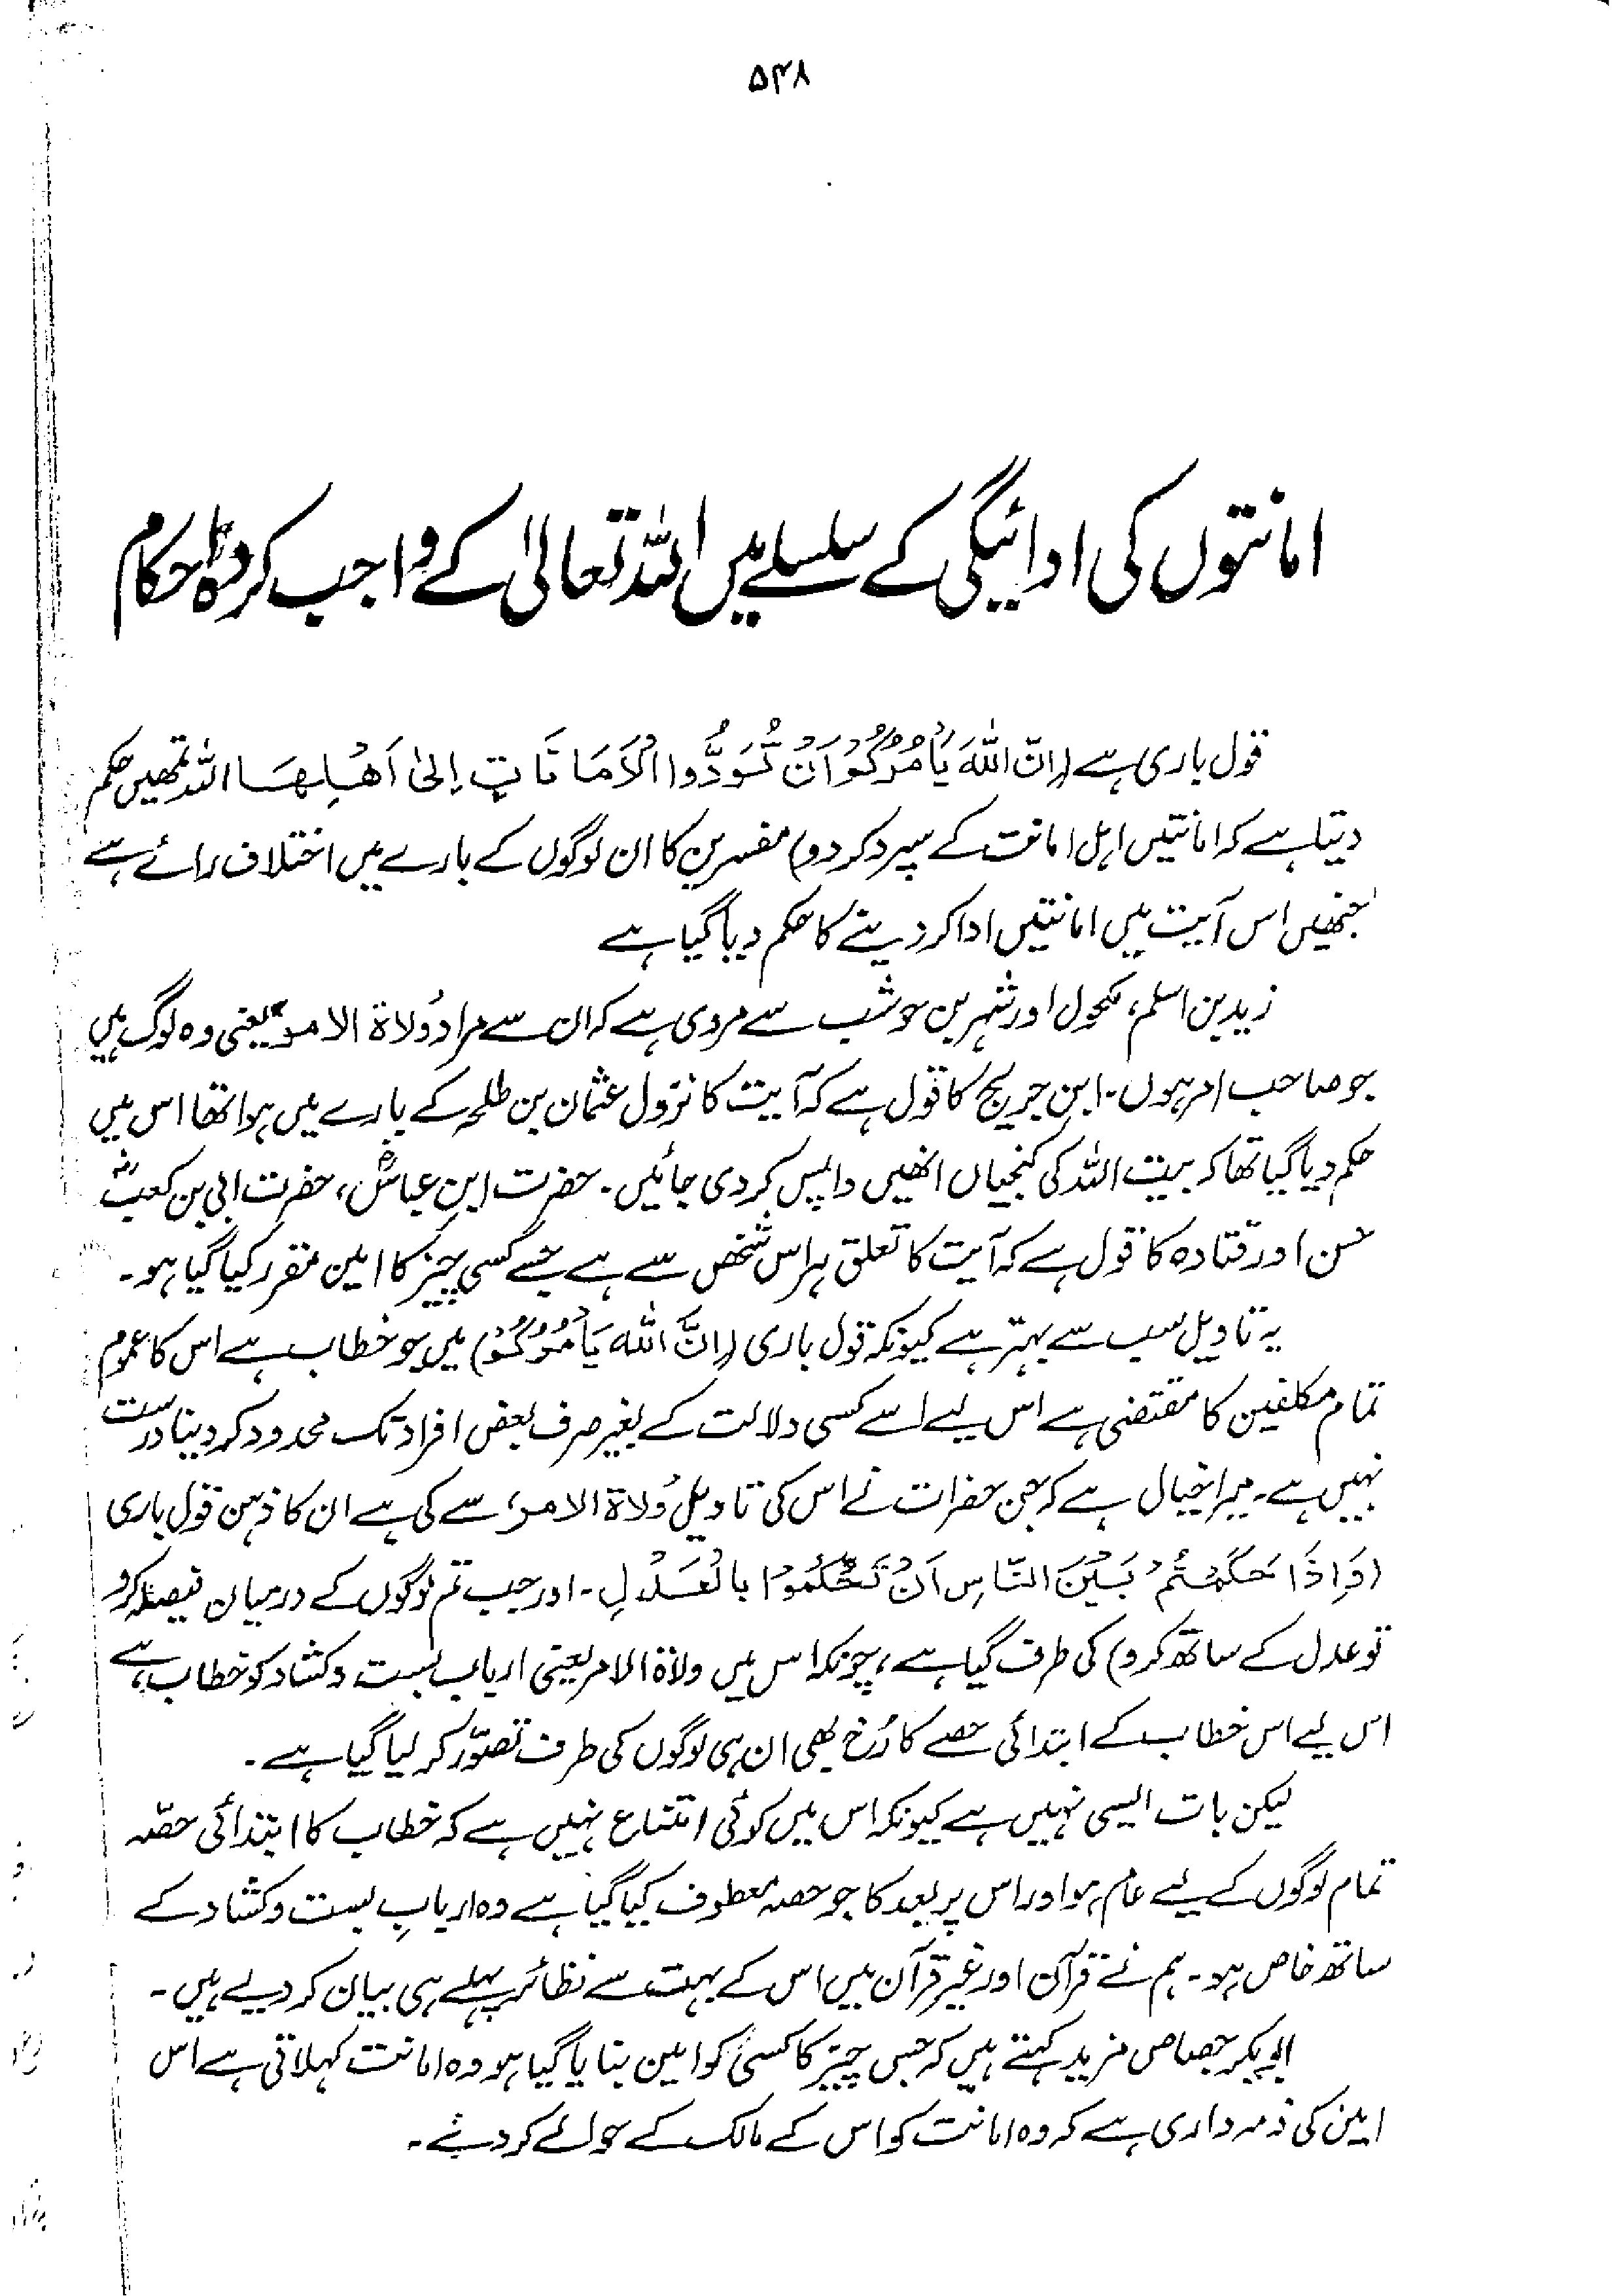 ۵۴۸
امانتوں کی ادائیگی کے سلسلے میں اللہ تعالیٰ کے واجب کردہ احکام
قول باری ہے (اِنَّ اللهَ يَأْمُرُكُمْ اَنْ تُؤَدُّوا الْاَمَانَاتِ اِلىٰ اَهْلِهَا اللہ تمھیں حکم
دیتا ہے کہ امانتیں اہل امانت کے سپرد کر دو) مفسرین کا ان لوگوں کے بارے میں اختلاف رائے ہے
جنھیں اس آیت میں امانتیں ادا کر دینے کا حکم دیا گیا ہے
زید بن اسلم، مکحول اور شہر بن حوشب سے مروی ہے کہ ان سے مراد وُلاۃ الامر یعنی وہ لوگ ہیں
جو صاحب امر ہوں۔ ابن جریج کا قول ہے کہ آیت کا نزول عثمان بن طلحہ کے بارے میں ہوا تھا اس میں
حکم دیا گیا تھا کہ بیت اللہ کی کنجیاں انھیں واپس کر دی جائیں۔ حضرت ابنِ عباسؓ، حضرت ابی بن کعبؓ
حسن اور قتادہ کا قول ہے کہ آیت کا تعلق ہر اس شخص سے ہے جسے کسی چیز کا امین مقرر کیا گیا ہو۔
یہ تاویل سب سے بہتر ہے کیونکہ قول باری (اِنَّ اللهَ يَأْمُرُكُمْ) میں جو خطاب ہے اس کا عموم
تمام مکلفین کا مقتضی ہے اس لیے اسے کسی دلالت کے بغیر صرف بعض افراد تک محدود کر دینا درست
نہیں ہے۔ میرا خیال ہے کہ جن حضرات نے اس کی تاویل وُلاۃ الامر، سے کی ہے ان کا ذہن قول باری
(وَاِذَا حَكَمْتُمْ بَيْنَ النَّاسِ اَنْ تَحْكُمُوْا بِالْعَدْلِ۔ اور جب تم لوگوں کے درمیان فیصلہ کرو
تو عدل کے ساتھ کرو) کی طرف گیا ہے، چونکہ اس میں ولاۃ الامر یعنی ارباب بست و کشاد کو خطاب ہے
اس لیے اس خطاب کے ابتدائی حصے کا رُخ بھی ان ہی لوگوں کی طرف تصوّر کر لیا گیا ہے۔
لیکن بات ایسی نہیں ہے کیونکہ اس میں کوئی امتناع نہیں ہے کہ خطاب کا ابتدائی حصّہ
تمام لوگوں کے لیے عام ہو اور اس پر بعد کا جو حصہ معطوف کیا گیا ہے وہ اربابِ بست و کشاد کے
ساتھ خاص ہو۔ ہم نے قرآن اور غیر قرآن میں اس کے بہت سے نظائر پہلے ہی بیان کر دیے ہیں۔
ابوبکر جصاص مزید کہتے ہیں کہ جس چیز کا کسی کو امین بنایا گیا ہو وہ امانت کہلاتی ہے اس
امین کی ذمہ داری ہے کہ وہ امانت کو اس کے مالک کے حوالے کر دے۔